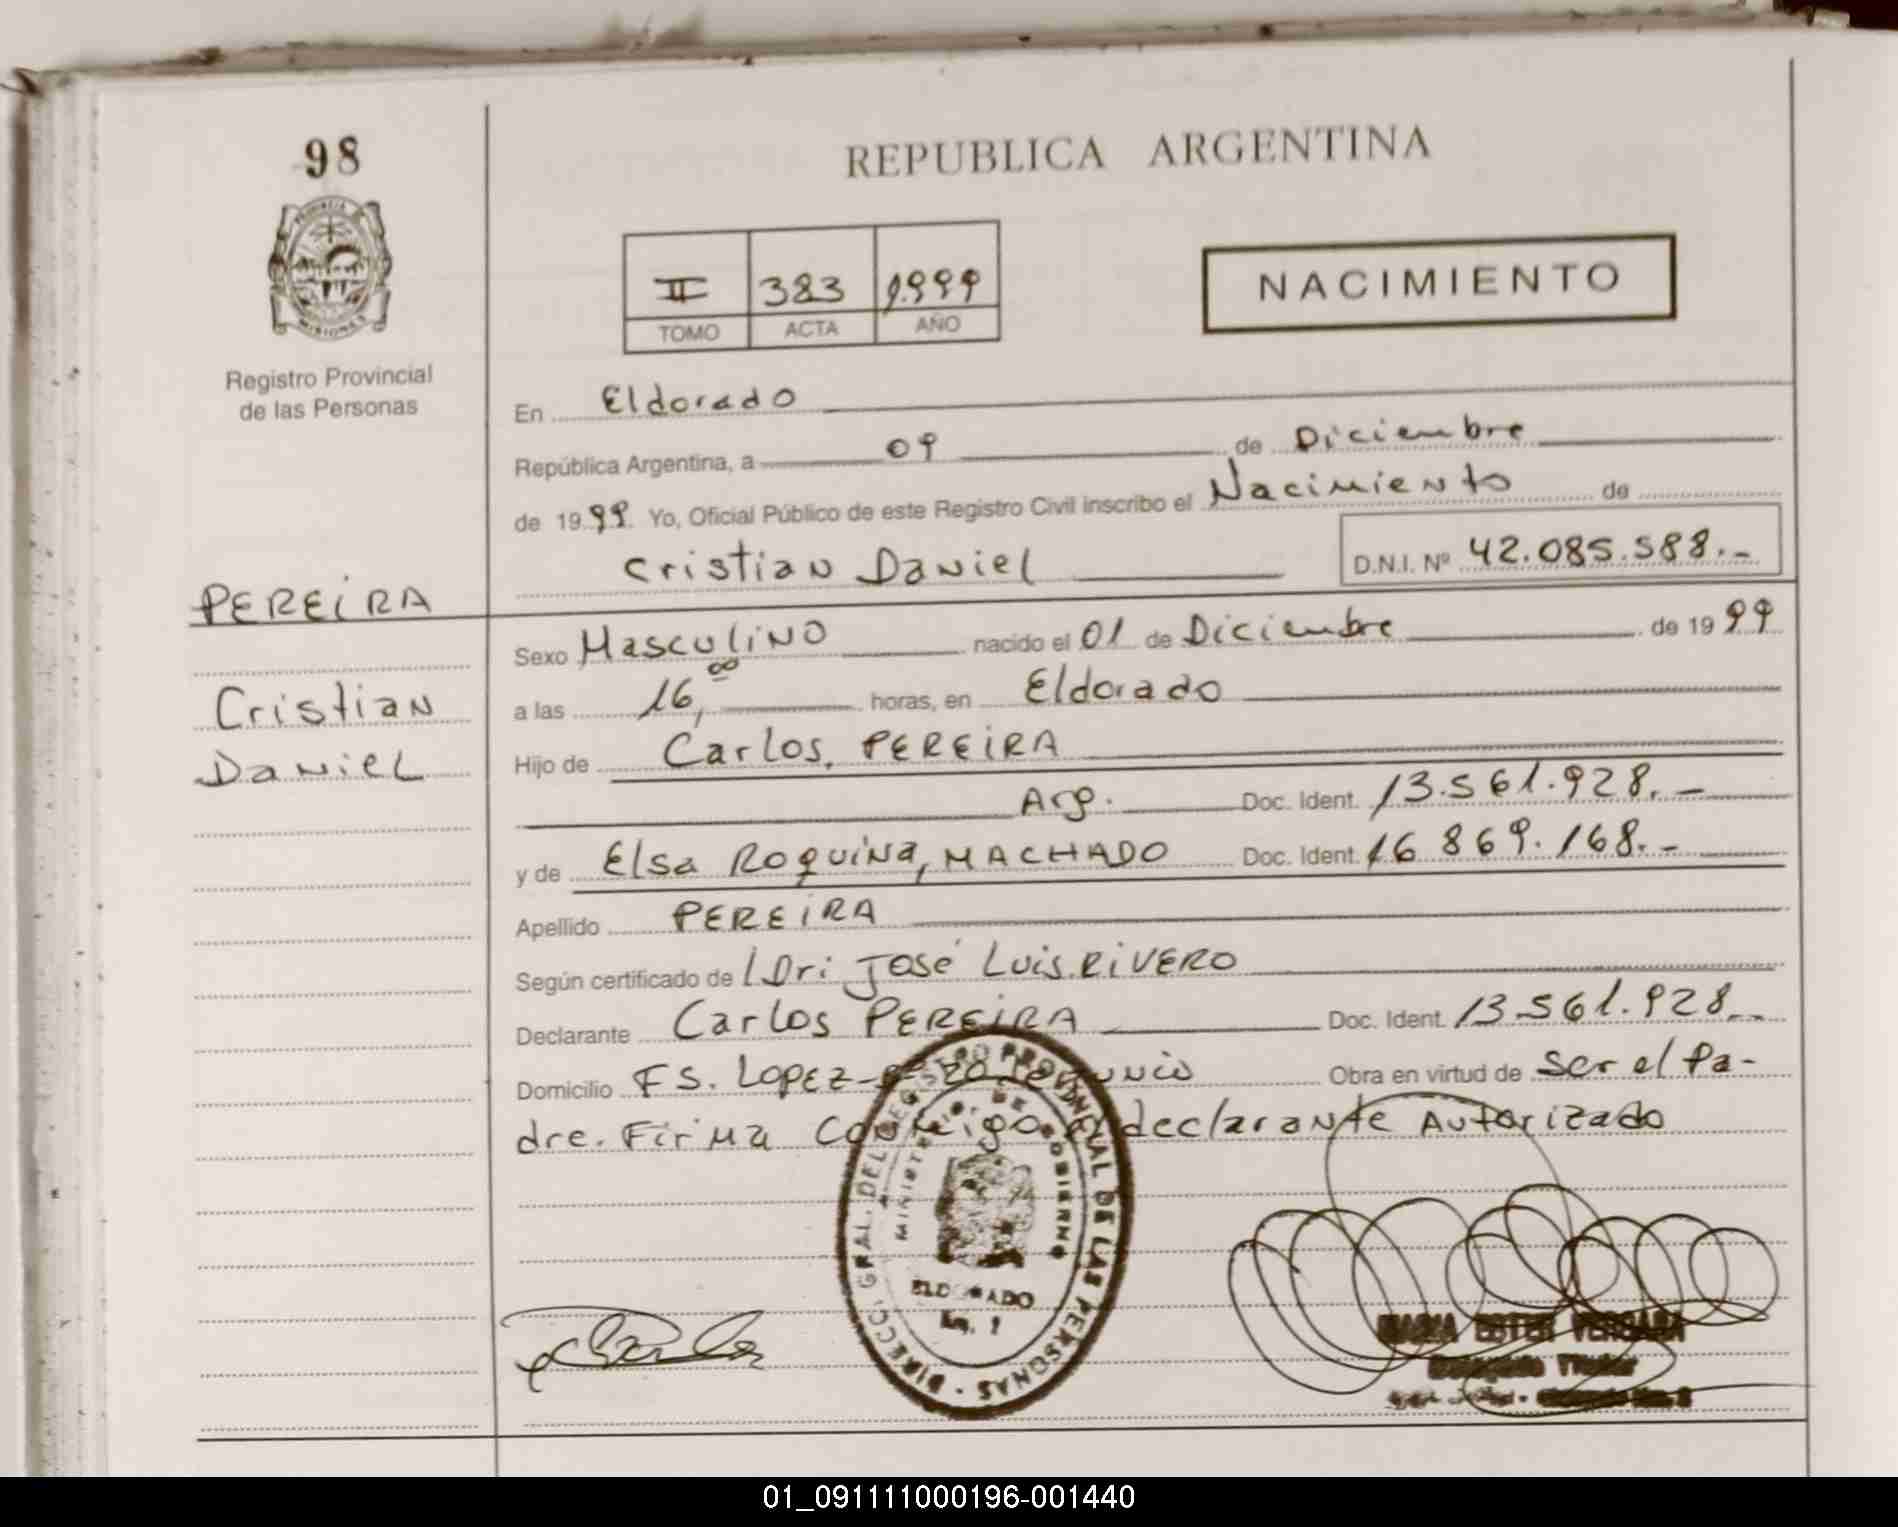 98
REPUBLICA ARGENTINA
PROVINCIA DE
MISIONES
Registro Provincial
de las Personas
II 383 1.999
TOMO ACTA AÑO
NACIMIENTO
En Eldorado
República Argentina, a 09 de Diciembre
de 1999 Yo, Oficial Público de este Registro Civil inscribo el Nacimiento de
Cristian Daniel D.N.I. Nº 42.085.588.-
PEREIRA
Cristian
Daniel
Sexo Masculino nacido el 01 de Diciembre de 1999
a las 16,00 horas, en Eldorado
Hijo de Carlos, PEREIRA
Arg. Doc. Ident. 13.561.928.-
y de Elsa ROQUINA, MACHADO Doc. Ident. 16 869.168.-
Apellido PEREIRA
Según certificado de Dr: José Luis RIVERO
Declarante Carlos PEREIRA Doc. Ident. 13.561.928.-
Domicilio FS. LOPEZ- Obra en virtud de Ser el Pa-
dre. Firma Conmigo el declarante Autorizado
DIRECC. GRAL. DEL REGISTRO PROVINCIAL DE LAS PERSONAS
MINISTERIO DE GOBIERNO
ELDORADO
ESTER VERGARA
Titular
01_091111000196-001440